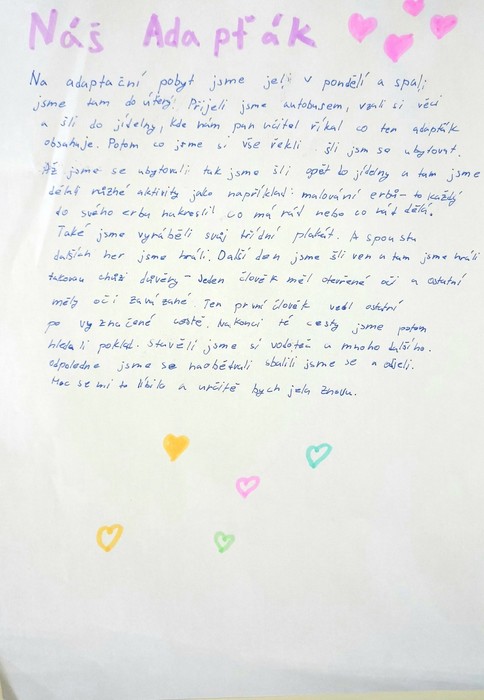 Náš Adapťák
Na adaptační pobyt jsme jeli v pondělí a spali
jsme tam do úterý. Přijeli jsme autobusem, vzali si věci
a šli do jídelny, kde nám pan učitel říkal co ten adapťák
obsahuje. Potom co jsme si vše řekli šli jsm se ubytovat.
Až jsme se ubytovali tak jsme šli opět do jídelny a tam jsme
dělali různé aktivity jako například: malování erbů - to každý
do svého erbu nakreslil co má rád nebo co rád dělá.
Také jsme vyráběli svůj třídní plakát. A spoustu
dalších her jsme hráli. Další den jsme šli ven a tam jsme hráli
takovou chůzi důvěry - Jeden člověk měl otevřené oči a ostatní
měly oči zavázané. Ten první člověk vedl ostatní
po vyznačené cestě. Nakonci té cesty jsme potom
hledali poklad. Stavěli jsme si vodoteč a mnoho dalšího.
odpoledne jsme se naobědvali sbalili jsme se a odjeli.
Moc se mi to líbilo a určitě bych jela znovu.